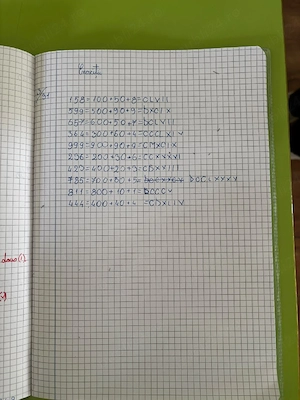 Exercitii
158=100+50+8=CLVIII
599=500+90+9=DXCIX
657=600+50+7=DCLVII
364=300+60+4=CCCLXIV
999=900+90+9=CMXCIX
236=200+30+6=CCXXXVI
423=400+20+3=CDXXIII
785=700+80+5= DCCLXXXV
811=800+10+1=DCCCV
444=400+40+4 =CDXLIV